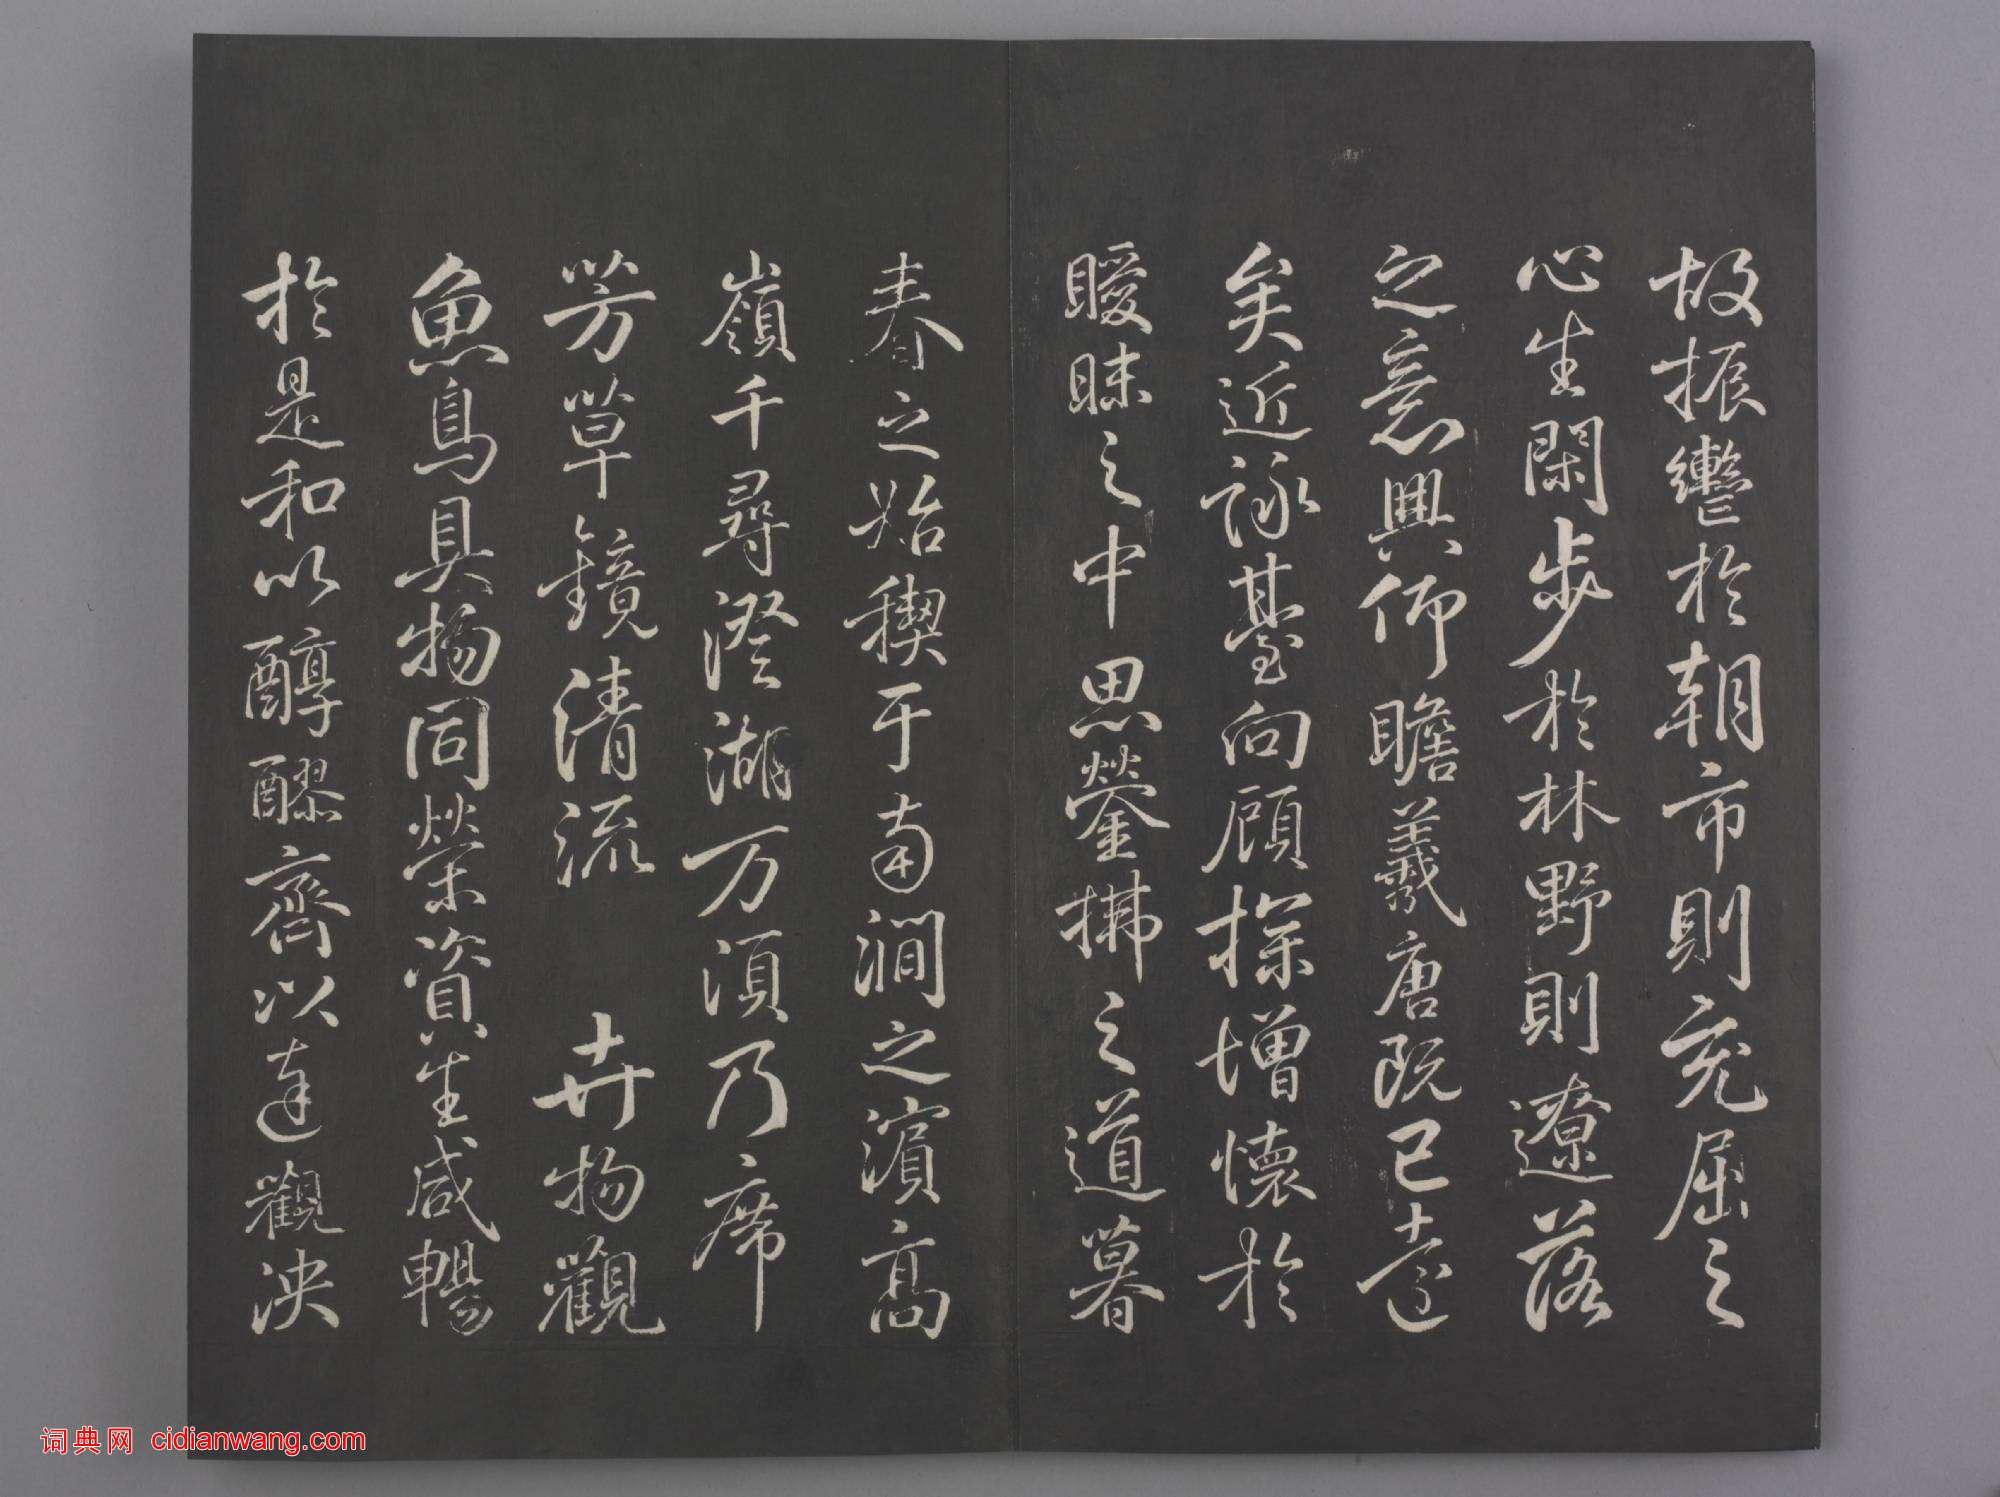 故振轡於朝市則充屈之
心生閑步於林野則遼落
之意興仰瞻羲唐既已遠
矣近詠臺向顧探增懷於
曖昧之中思鎣拂之道暮
春之始禊于南澗之濱高
嶺千尋澄湖万頃乃席
芳草鏡清流 卉物觀
魚鳥具物同榮資生咸暢
於是和以醇醪齊以達觀泱
词典网 cidianwang.com